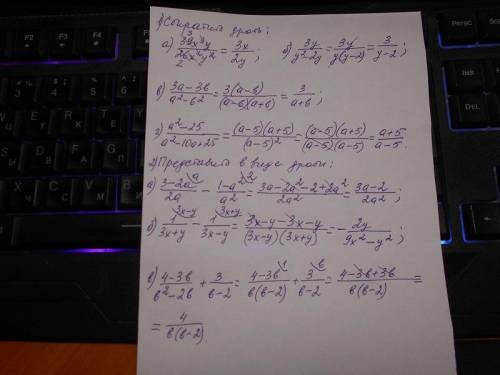 1) Сократить дробь:
а) 39x³y / 26x²y² = 3x / 2y ; б) 3y / y²-2y = 3y / y(y-2) = 3 / y-2 ;
в) 3a-3b / a²-b² = 3(a-b) / (a-b)(a+b) = 3 / a+b ;
г) a²-25 / a²-10a+25 = (a-5)(a+5) / (a-5)² = (a-5)(a+5) / (a-5)(a-5) = a+5 / a-5 .
2) Представить в виде дроби:
а) 3-2a / 2a - 1-a² / a² = 3a-2a²-2+2a² / 2a² = 3a-2 / 2a² ;
б) 1 / 3x+y - 1 / 3x-y = 3x-y-3x-y / (3x-y)(3x+y) = - 2y / 9x²-y² ;
в) 4-3b / b²-2b + 3 / b-2 = 4-3b / b(b-2) + 3 / b-2 = 4-3b+3b / b(b-2) =
= 4 / b(b-2) .